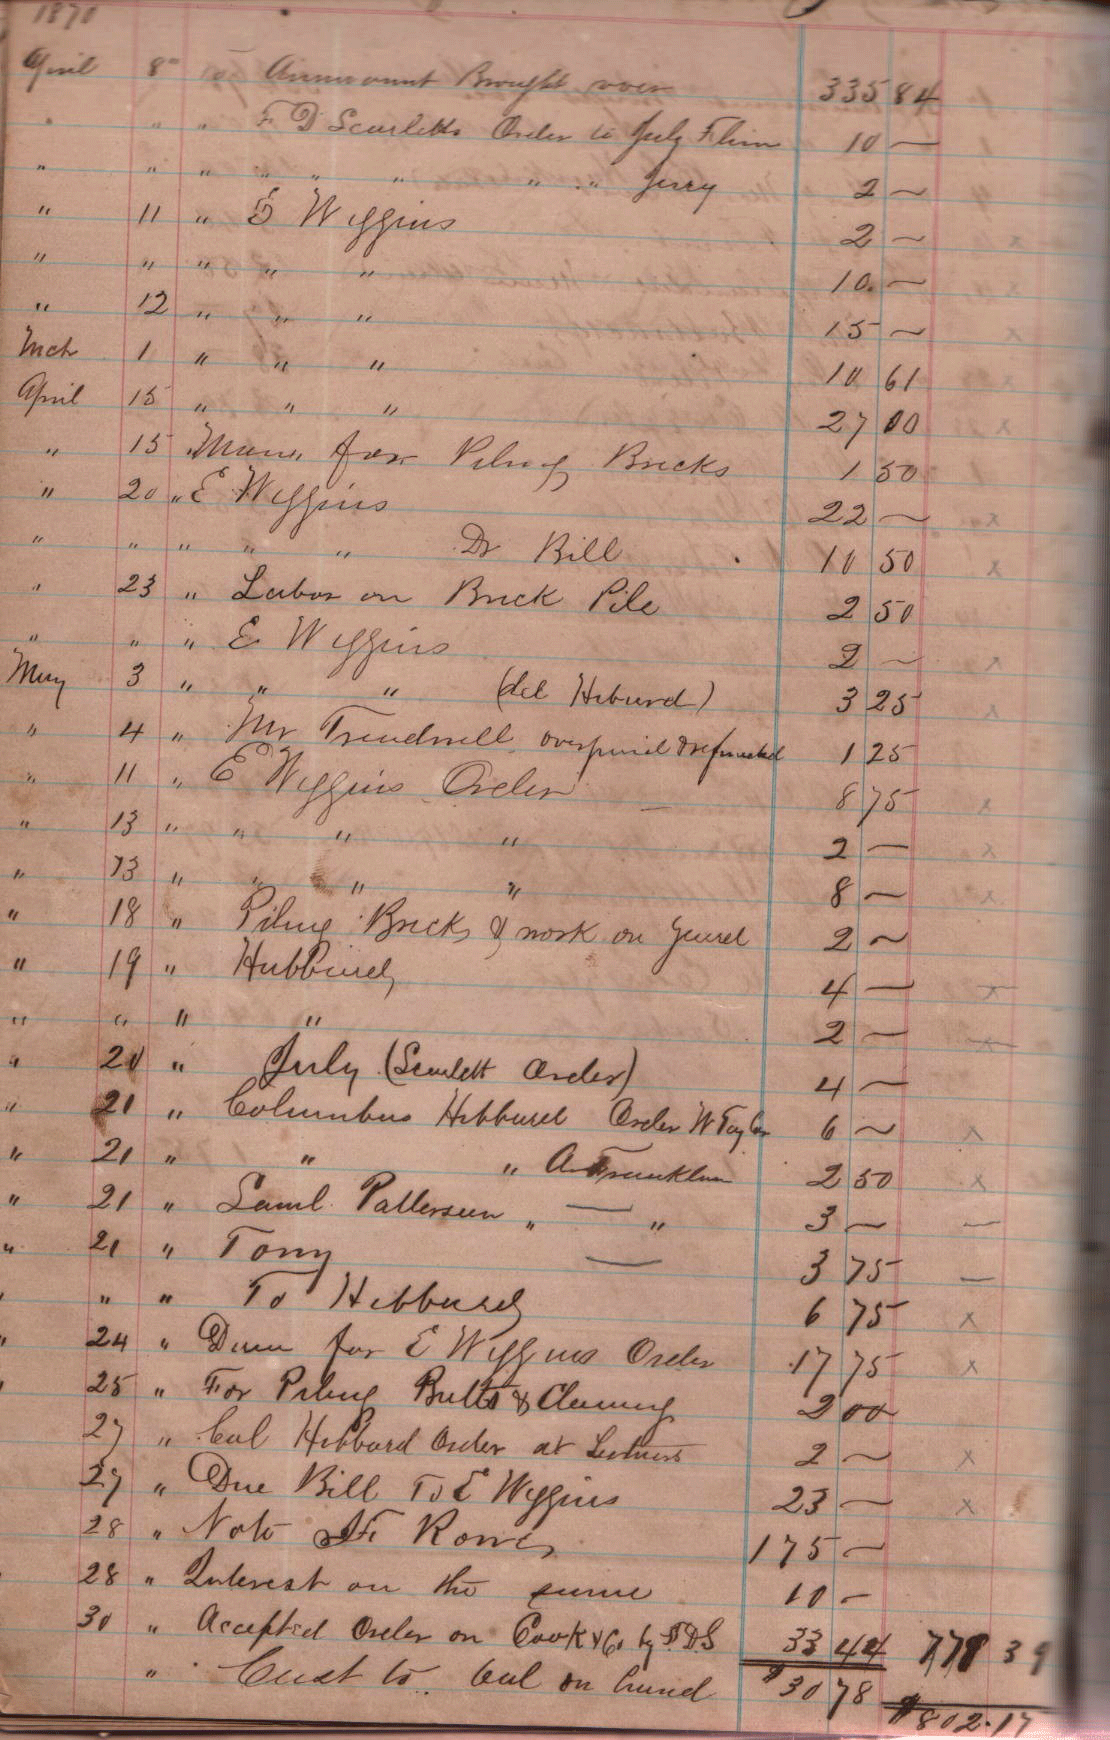 1870
April 8 " To Ammount Brought over 335 84
" " " F D Scarletts Order to July Flinn 10 —
" " " " " " " Jerry 2 —
" 11 " E Wiggins 2 —
" " " " " 10 —
" 12 " " " 15 —
Mch 1 " " " 10 61
April 15 " " " 27 00
" 15 " Man for Piling Bricks 1 50
" 20 " E Wiggins 22 —
" " " " " Dr Bill 10 50
" 23 " Labor on Brick Pile 2 50
" " " E Wiggins 2 —
May 3 " " " (del Hiburd) 3 25
" 4 " Mr Treadwell overpaid & refunded 1 25
" 11 " E Wiggins Order 8 75
" 13 " " " " 2 —
" 13 " " " " 8 —
" 18 " Piling Bricks & work on yard 2 —
" 19 " Hubbard 4 —
" " " " 2 —
" 20 " July (Scarlett Order) 4 —
" 21 " Columbus Hibbard Order W Taylor 6 —
" 21 " " " A Franklin 2 50
" 21 " Saml Patterson " — " 3 —
" 21 " Tony — 3 75
" " " To Hibbard 6 75
" 24 " for E Wiggins Order 17 75
" 25 " For Piling Butts & Cleaning 2 00
27 " Cul Hibbard Order at 2 —
27 " Due Bill To E Wiggins 23 —
28 " Note 175 —
28 " Interest on the same 10 -
30 " Accepted Order on Cook & Co by F.D.S 33 44 778 39
" Cash to Cul on hand $30 78
$802.17